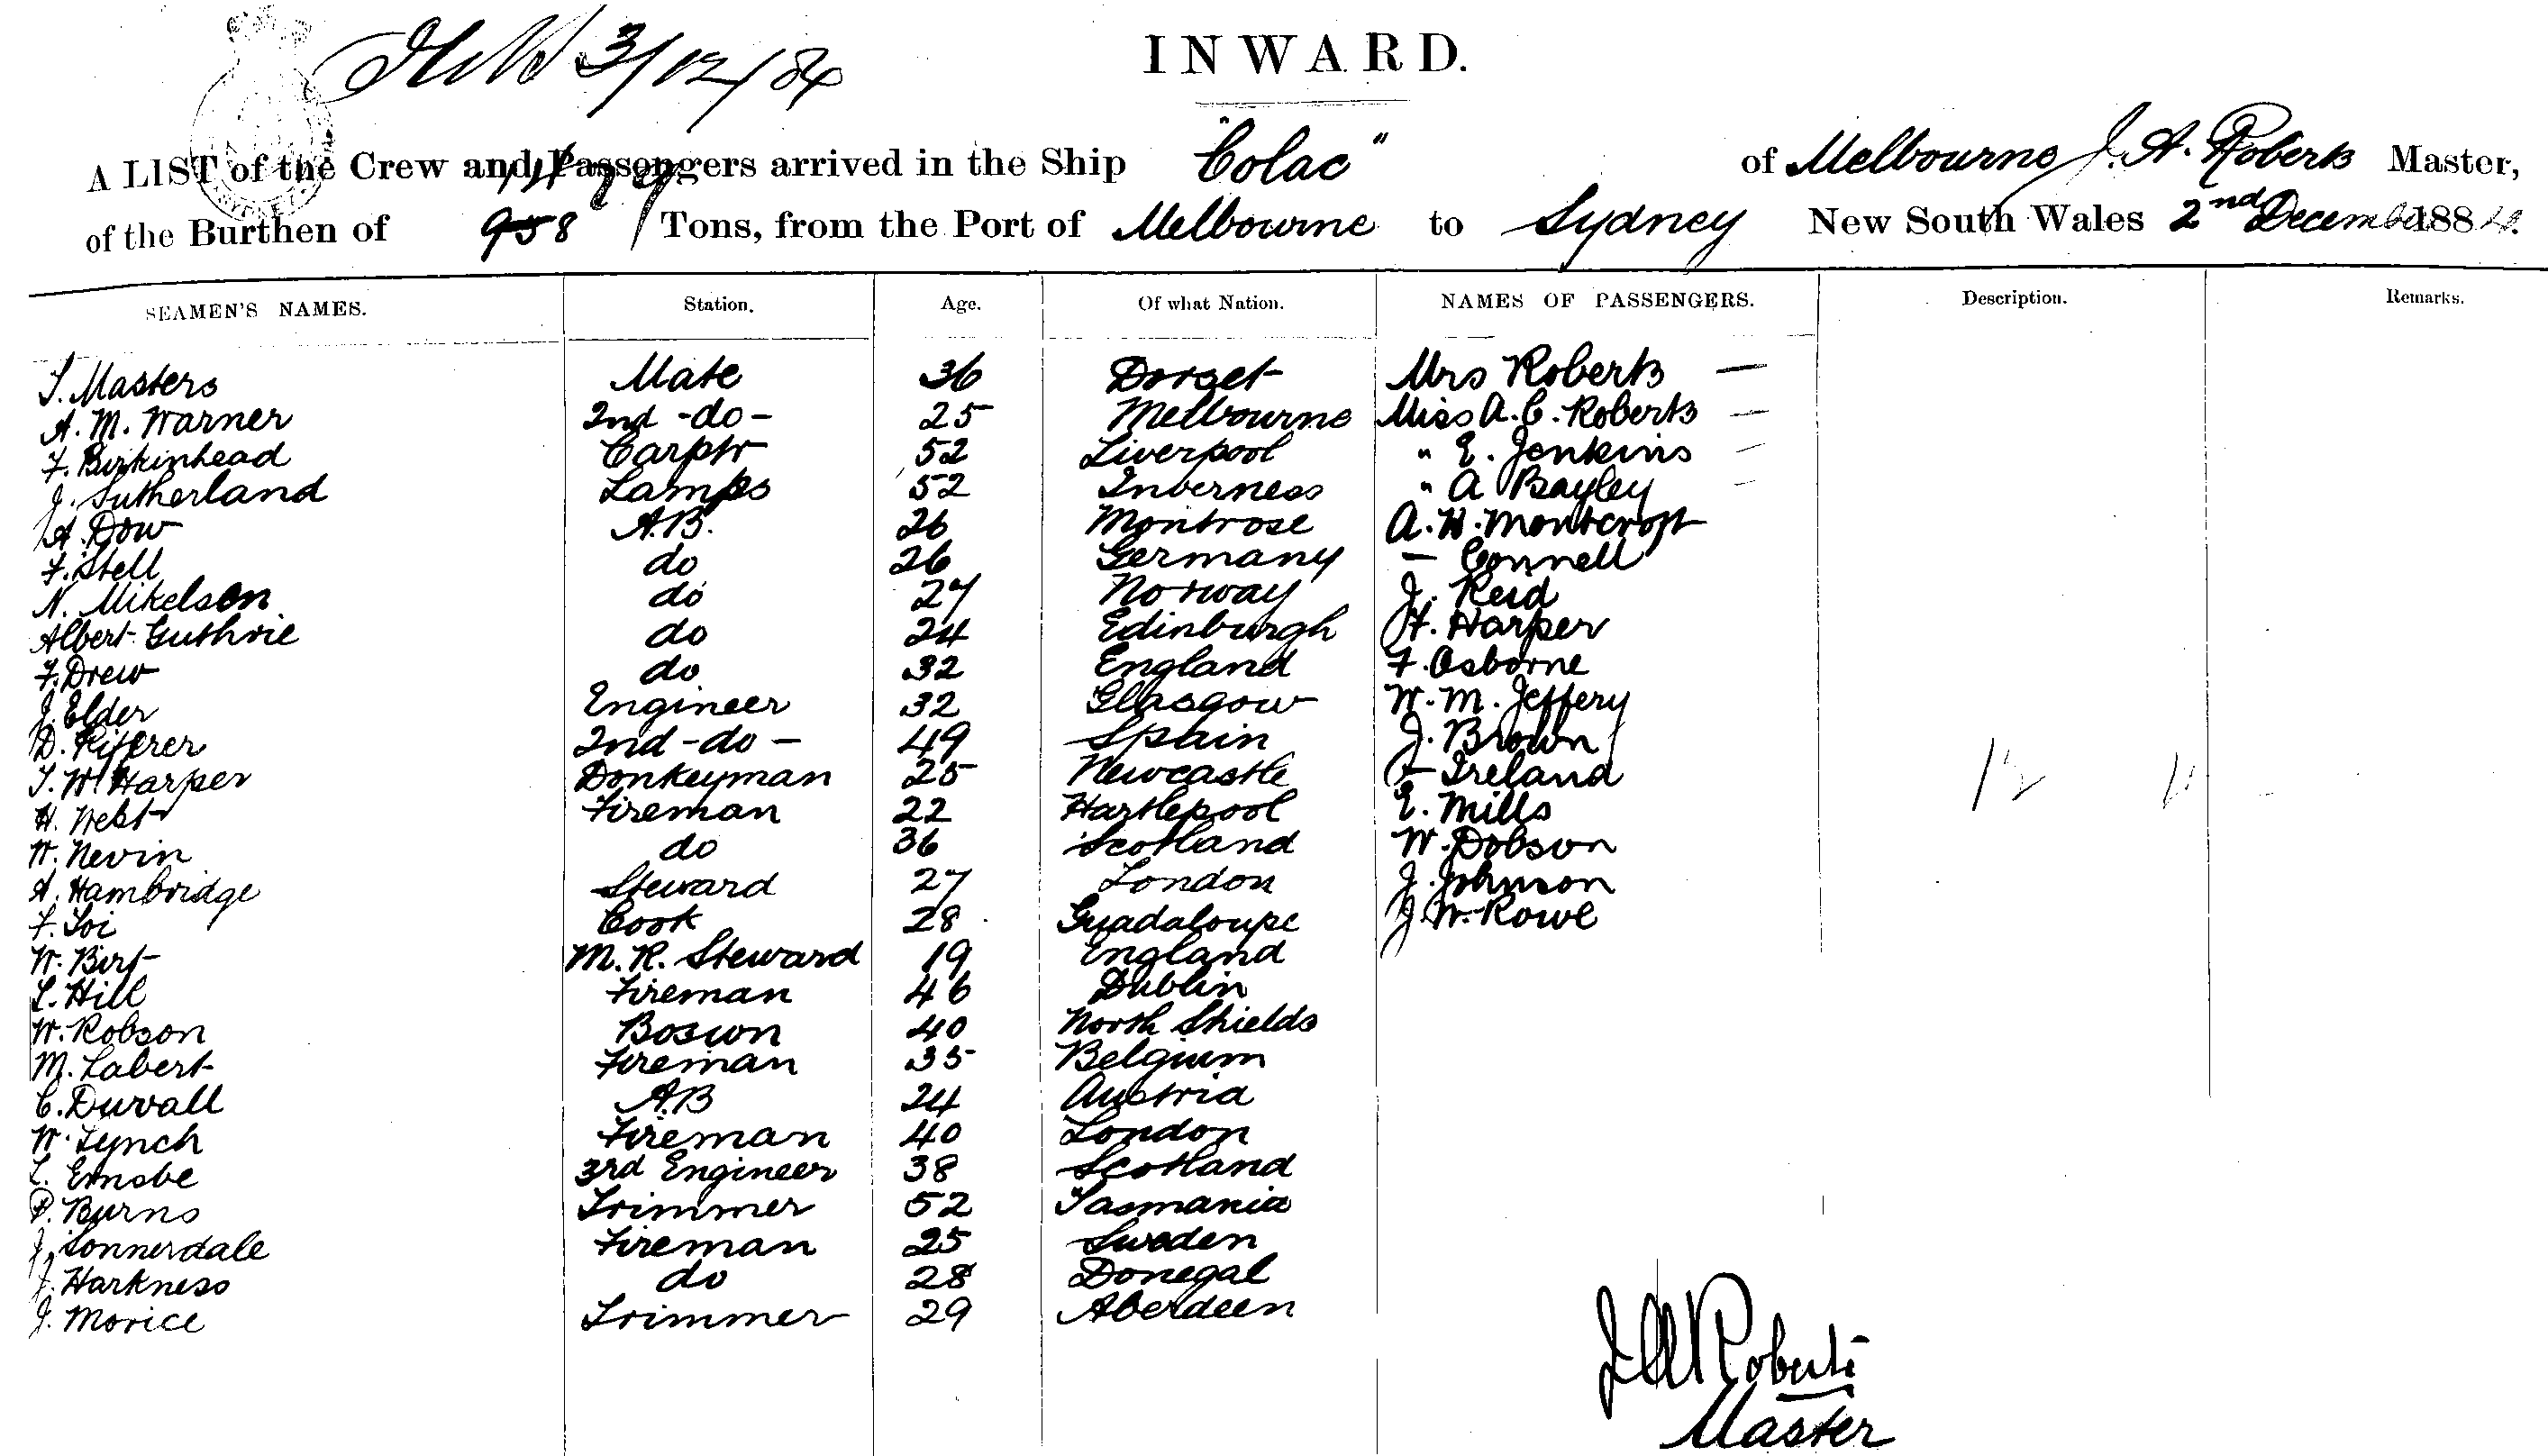 3/12/84
INWARD.
A LIST of the Crew and Passengers arrived in the Ship "Colac" of Melbourne J. A. Roberts Master,
of the Burthen of 958 1479 Tons, from the Port of Melbourne to Sydney New South Wales 2nd December 1884.
SEAMEN'S NAMES. Station. Age. Of what Nation. NAMES OF PASSENGERS. Description. Remarks.
T. Masters Mate 36 Dorset Mrs Roberts —
A. M. Warner 2nd -do- 25 Melbourne Miss A. C. Roberts —
F. Birkinhead Carptr 52 Liverpool " E. Jenkins —
J. Sutherland Lamps 52 Inverness " A Bayley —
A. Dow A.B. 26 Montrose A. H. Montcroft
F. Stell do 26 Germany — Connell
N. Mikelson do 27 Norway J. Reid
Albert Guthrie do 24 Edinburgh H. Harper
F. Drew do 32 England F. Osborne
J. Elder Engineer 32 Glasgow W. M. Jeffery
D. Kiferer 2nd -do- 49 Spain J. Brown
T. W. Harper Donkeyman 25 Newcastle — Ireland
H. West Fireman 22 Hartlepool E. Mills
W. Nevin do 36 Scotland W. Dobson
A. Hambridge Steward 27 London J. Johnson
F. Loi Cook 28 Guadaloupe J. W. Rowe
W. Birt M. R. Steward 19 England
L. Hill Fireman 46 Dublin
W. Robson Boswn 40 North Shields
M. Labert Fireman 35 Belgium
C. Duvall A.B 24 Austria
W. Lynch Fireman 40 London
L. Ernsbe 3rd Engineer 38 Scotland
P. Burns Trimmer 52 Tasmania
J. Sonnerdale Fireman 25 Sweden
J. Harkness do 28 Donegal
J. Morice Trimmer 29 Aberdeen
12
J A Roberts
Master